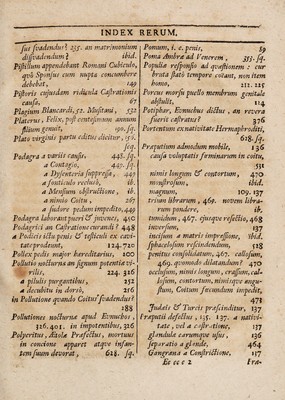 INDEX RERUM.
sus svadendus? 235. an matrimonium
dissvadendum? ibid.
Pistillum appendebant Romani Cubiculo,
quô Sponsus cum nupta concumbere
debebat, 149
Pistoris ejusdem ridicula Castrationis
causa, 67
Plagium Blancardi, 52. Musitani, 552
Platerus, Felix, post centesimum annum
filium genuit, 190. sq.
Plato virginis partu editus dicitur, 150.
sq.
Podagra a variis causis. 448. sq.
a Contagio, 449. sq.
a Dysenteria suppressa, 449
a fonticulo recluso, ib.
a Mensium obstructione, ibid.
a nimio Coitu, 267
a sudore pedum impedito, 449
Podagra laborant pueri & juvenes, 450
Podagrici an Castratione curandi? 448
a Podicis ictu penis & testiculi ex cavi-
tate prodeunt, 124. 720
Pollex pedis major hæreditarius, 100
Pollutio nocturna an signum potentiæ vi-
rilis, 224. 326
a pilulis purgantibus, 252
a decubitu in dorsi, 216
in Pollutione quando Coitus svadendus?
188
Pollutiones nocturna apud Eunuchos,
326. 401. in impotentibus, 326
Polycritus, Ætolæ Præfectus, mortuus
in concione apparet atque infan-
tem suum devorat, 628. sq.
Ponum, i. e. penis, 89
Poma Ambræ ad Venerem, 353. sq.
Populiæ responsio ad quæstionem: cur
bruta stato tempore coeant, non item
homo, 211. 225
Porcus morsu puello membrum genitale
abstulit, 114
Potiphar, Eunuchus dictus, an revera
fuerit castratus? 376
Portentum ex nativitate Hermaphroditi,
628. sq.
Præputium admodum mobile, 136
causa voluptatis fœminarum in coitu,
551
nimis longum & contortum, 470
monstrosum, ibid.
magnum, 109. 137
trium librarum, 469. novem libra-
rum pondere, ib.
tumidum, 467. ejusque resectio, 468
inversum, 137
incisum a matris impressione, ibid.
sphacelosum rescindendum, 528
penitus consolidatum, 467. callosum,
469. quomodo dilatandum? 470
occlusum, nimis longum, crasum, cal-
losum, contortum, nimisque angu-
stum, Coitum fœcundum impedit,
471
Judæis & Turcis præscinditur, 137
Præputii defectus, 135. 137. a nativi-
tate, vel a castratione, 137
glandula earumque usus, 136
separatio a glande, 464
Gangræna a Constrictione, 117
Ee ee e 2 Fra-